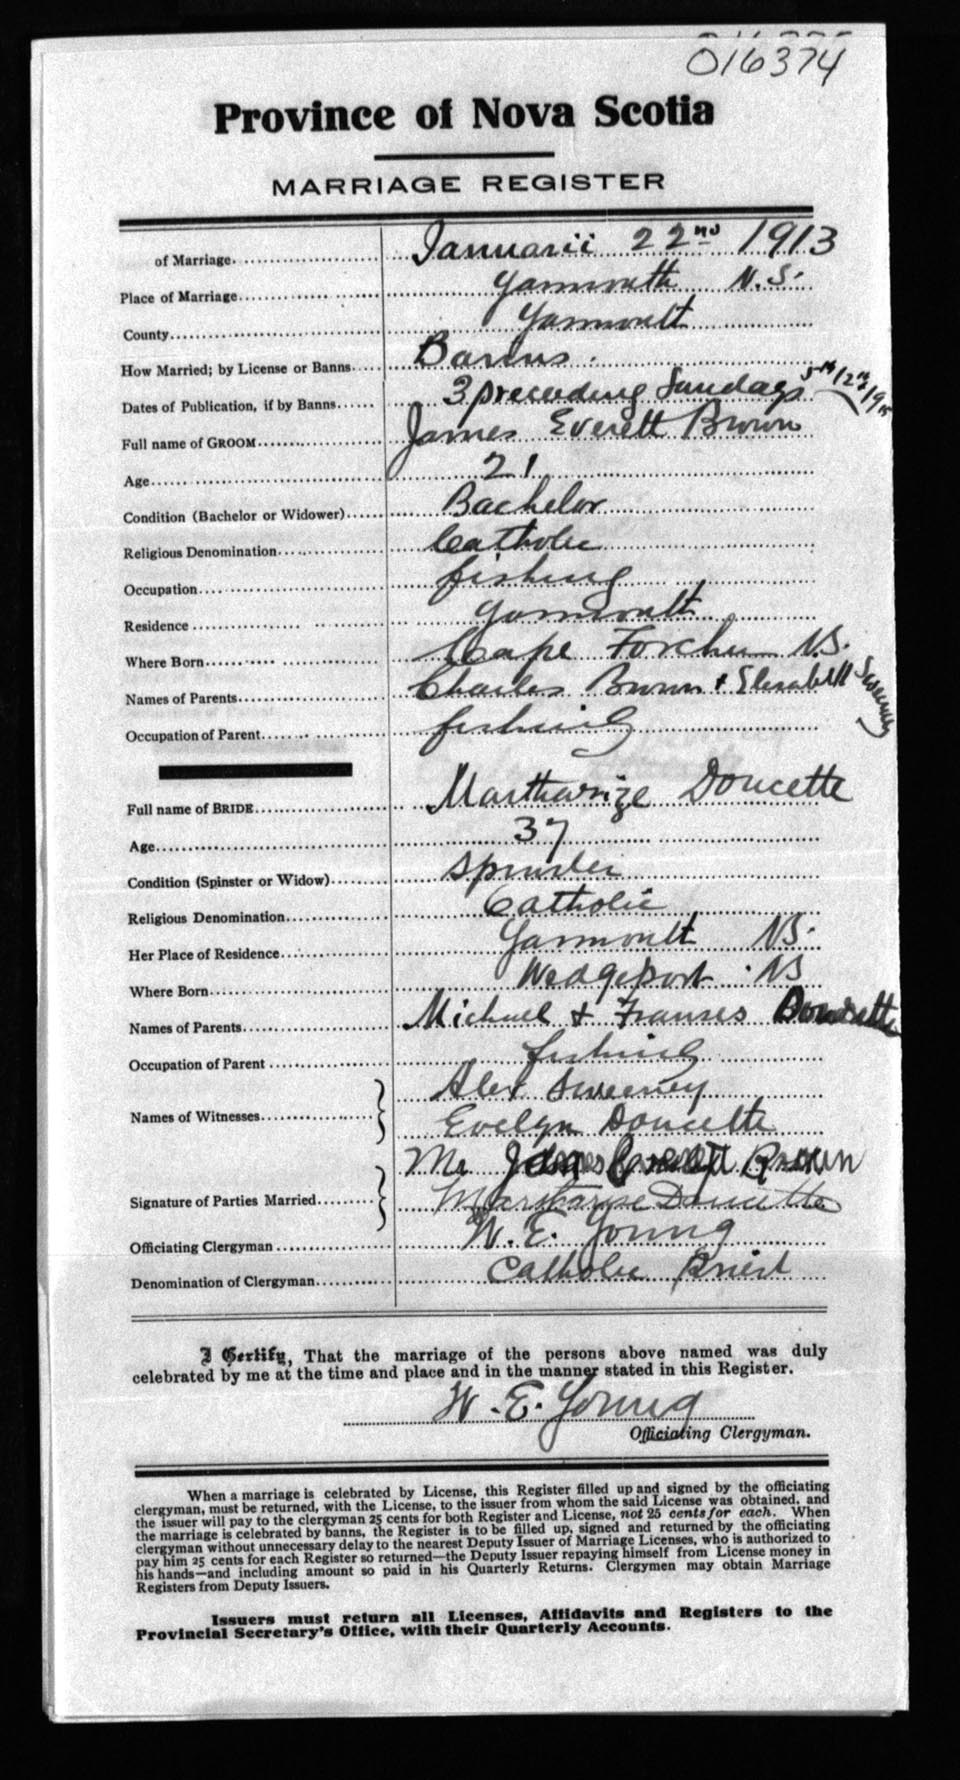 016374
Province of Nova Scotia
MARRIAGE REGISTER
of Marriage Januarii 22nd 1913
Place of Marriage Yarmouth N.S.
County Yarmouth
How Married; by License or Banns Banns.
Dates of Publication, if by Banns 3 preceeding Sundays 5th 12th 19th
Full name of GROOM James Everett Brown
Age 21
Condition (Bachelor or Widower) Bachelor
Religious Denomination Catholic
Occupation fishing
Residence Yarmouth
Where Born Cape Forchu N.S.
Names of Parents Charles Brown + Elisabett Sweeney
Occupation of Parent fishing
Full name of BRIDE Martharize Doucette
Age 37
Condition (Spinster or Widow) Spinster
Religious Denomination Catholic
Her Place of Residence Yarmouth NS.
Where Born Wedgeport NS
Names of Parents Michael & Franses Doucette
Occupation of Parent fishing
Names of Witnesses Alex Sweeney
Evelyn Doucette
Signature of Parties Married Mr James Everett Brown
Martharise Doucette
Officiating Clergyman W. E. Young
Denomination of Clergyman Catholic Priest
I Certify, That the marriage of the persons above named was duly
celebrated by me at the time and place and in the manner stated in this Register.
W. E. Young
Officiating Clergyman.
When a marriage is celebrated by License, this Register filled up and signed by the officiating
clergyman, must be returned, with the License, to the issuer from whom the said License was obtained, and
the issuer will pay to the clergyman 25 cents for both Register and License, not 25 cents for each. When
the marriage is celebrated by banns, the Register is to be filled up, signed and returned by the officiating
clergyman without unnecessary delay to the nearest Deputy Issuer of Marriage Licenses, who is authorized to
pay him 25 cents for each Register so returned—the Deputy Issuer repaying himself from License money in
his hands—and including amount so paid in his Quarterly Returns. Clergymen may obtain Marriage
Registers from Deputy Issuers.
Issuers must return all Licenses, Affidavits and Registers to the
Provincial Secretary's Office, with their Quarterly Accounts.